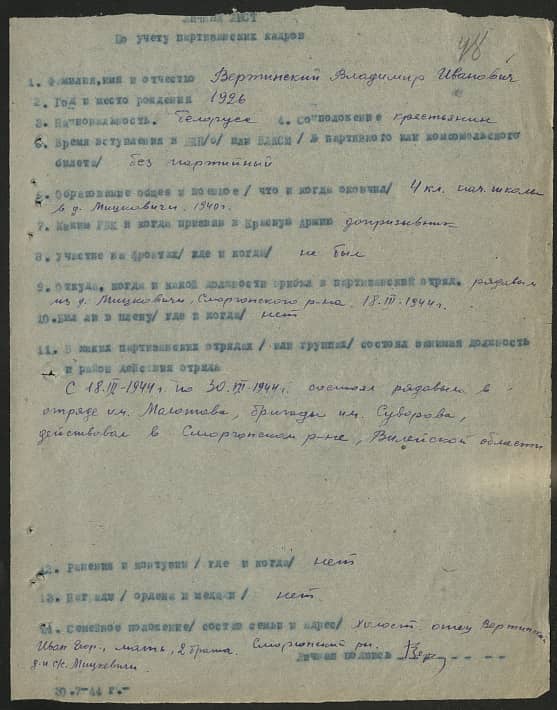 ЛИЧНЫЙ ЛИСТ
48
По учету партизанских кадров
1. Фамилия, имя и отчество Вертинский Владимир Иванович
2. Год и место рождения 1926
3. Национальность. белорусс 4. Соцположение крестьянин
5. Время вступления в ВКП/б/ или ВЛКСМ / № партийного или комсомольского
билета/ без партийный
6. Образование общее и военное / что и когда окончил/ 4 кл. нач. школы
в д. Мицкевичи. 1940 г.
7. Каким РВК и когда призван в Красную Армию допризывник
8. Участие на фронтах/ где и когда/ не был
9. Откуда, когда и какой должности прибыл в партизанский отряд. рядовым
из д. Мицкевичи, Сморгонского р-на. 18.III-1944 г.
10. Был ли в плену/ где и когда/ нет
11. В каких партизанских отрядах / или группах/ состоял занимая должность
и район действия отряда
С 18.III-1944 г. по 30.VII-1944 г. состоял рядовым в
отряде им. Молотова, бригады им. Суворова,
действовал в Сморгонском р-не, Вилейской области
12. Ранения и контузии / где и когда/ нет
13. Награды / ордена и медали / нет.
14. Семейное положение/ состав семьи и адрес/ Холост. отец Вертинский
Иван, мать, 2 брата. Сморгонский р-н.
д. Мицкевичи.
Личная подпись
30.7-44 г.-